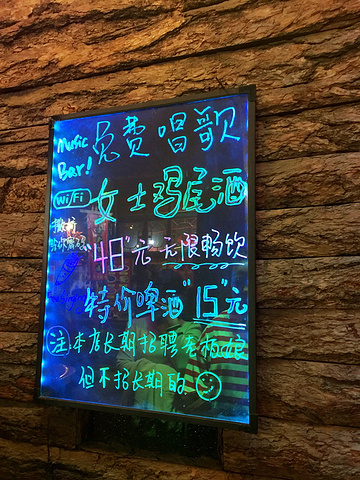 Music
Bar!
免费唱歌
WiFi
女士鸡尾酒
"48"元 无限畅饮
特价啤酒"15"元
注:本店长期招聘老板娘
但不招长期的